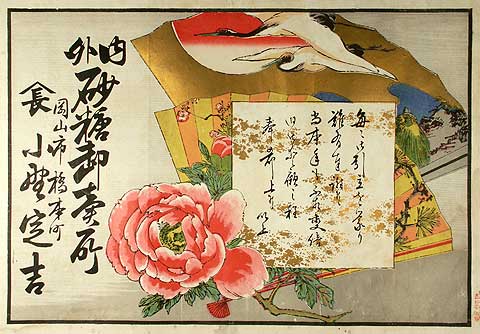 内外
砂糖卸賣所
長
岡山市橋本町
小野定吉
毎々御引立を蒙り
難有奉謝候
尚本年も不相変倍
旧御
奉希上候 以上